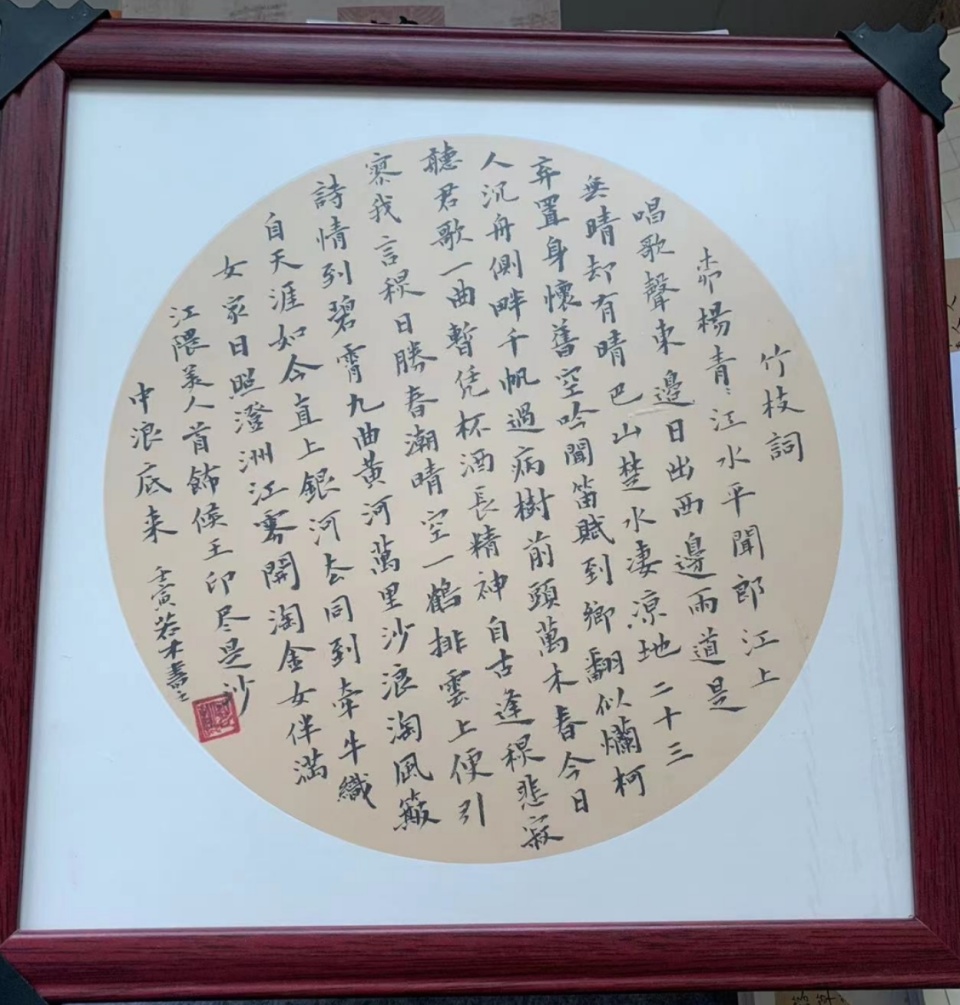 竹枝詞
楊青〻江水平聞郎江上
唱歌聲東邊日出西邊雨道是
無晴却有晴巴山楚水凄凉地二十三
弃置身懷舊空吟聞笛賦到鄉翻似爛柯
人沉舟側畔千帆過病樹前頭萬木春今日
聽君歌一曲暫凭杯酒長精神自古逢穐悲寂
寥我言穐日勝春潮晴空一鶴排雲上便引
詩情到碧霄九曲黄河萬里沙浪淘風簸
自天涯如今直上銀河去同到牽牛織
女家日照澄洲江霧開淘金女伴滿
江隈美人首飾侯王印尽是沙
中浪底来
壬寅若木書